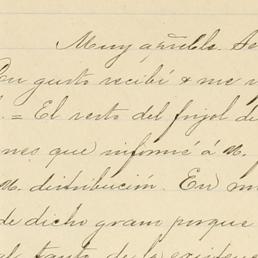 Muy apreble. Se
Con gusto recibí & me
= El resto del frijol de
nes que informé á U.
U. distribución. En m
de dicho gram porque
tanto de la existen